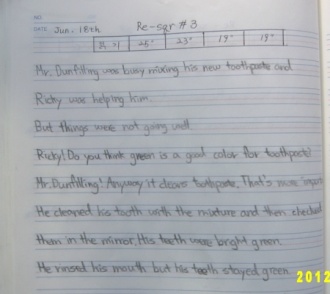 NO.
DATE Jun. 18th Re-sqr #3
25" 23" 19" 19"
Mr. Dunfilling was busy mixing his new toothpaste and
Ricky was helping him.
But things were not going well.
Ricky! Do you think green is a good color for toothpaste?
Mr. Dunfilling! Anyway it cleans toothpaste. That's more important
He cleaned his tooth with the mixture and then checked
them in the mirror. His teeth were bright green.
He rinsed his mouth but his teeth stayed green.
2012